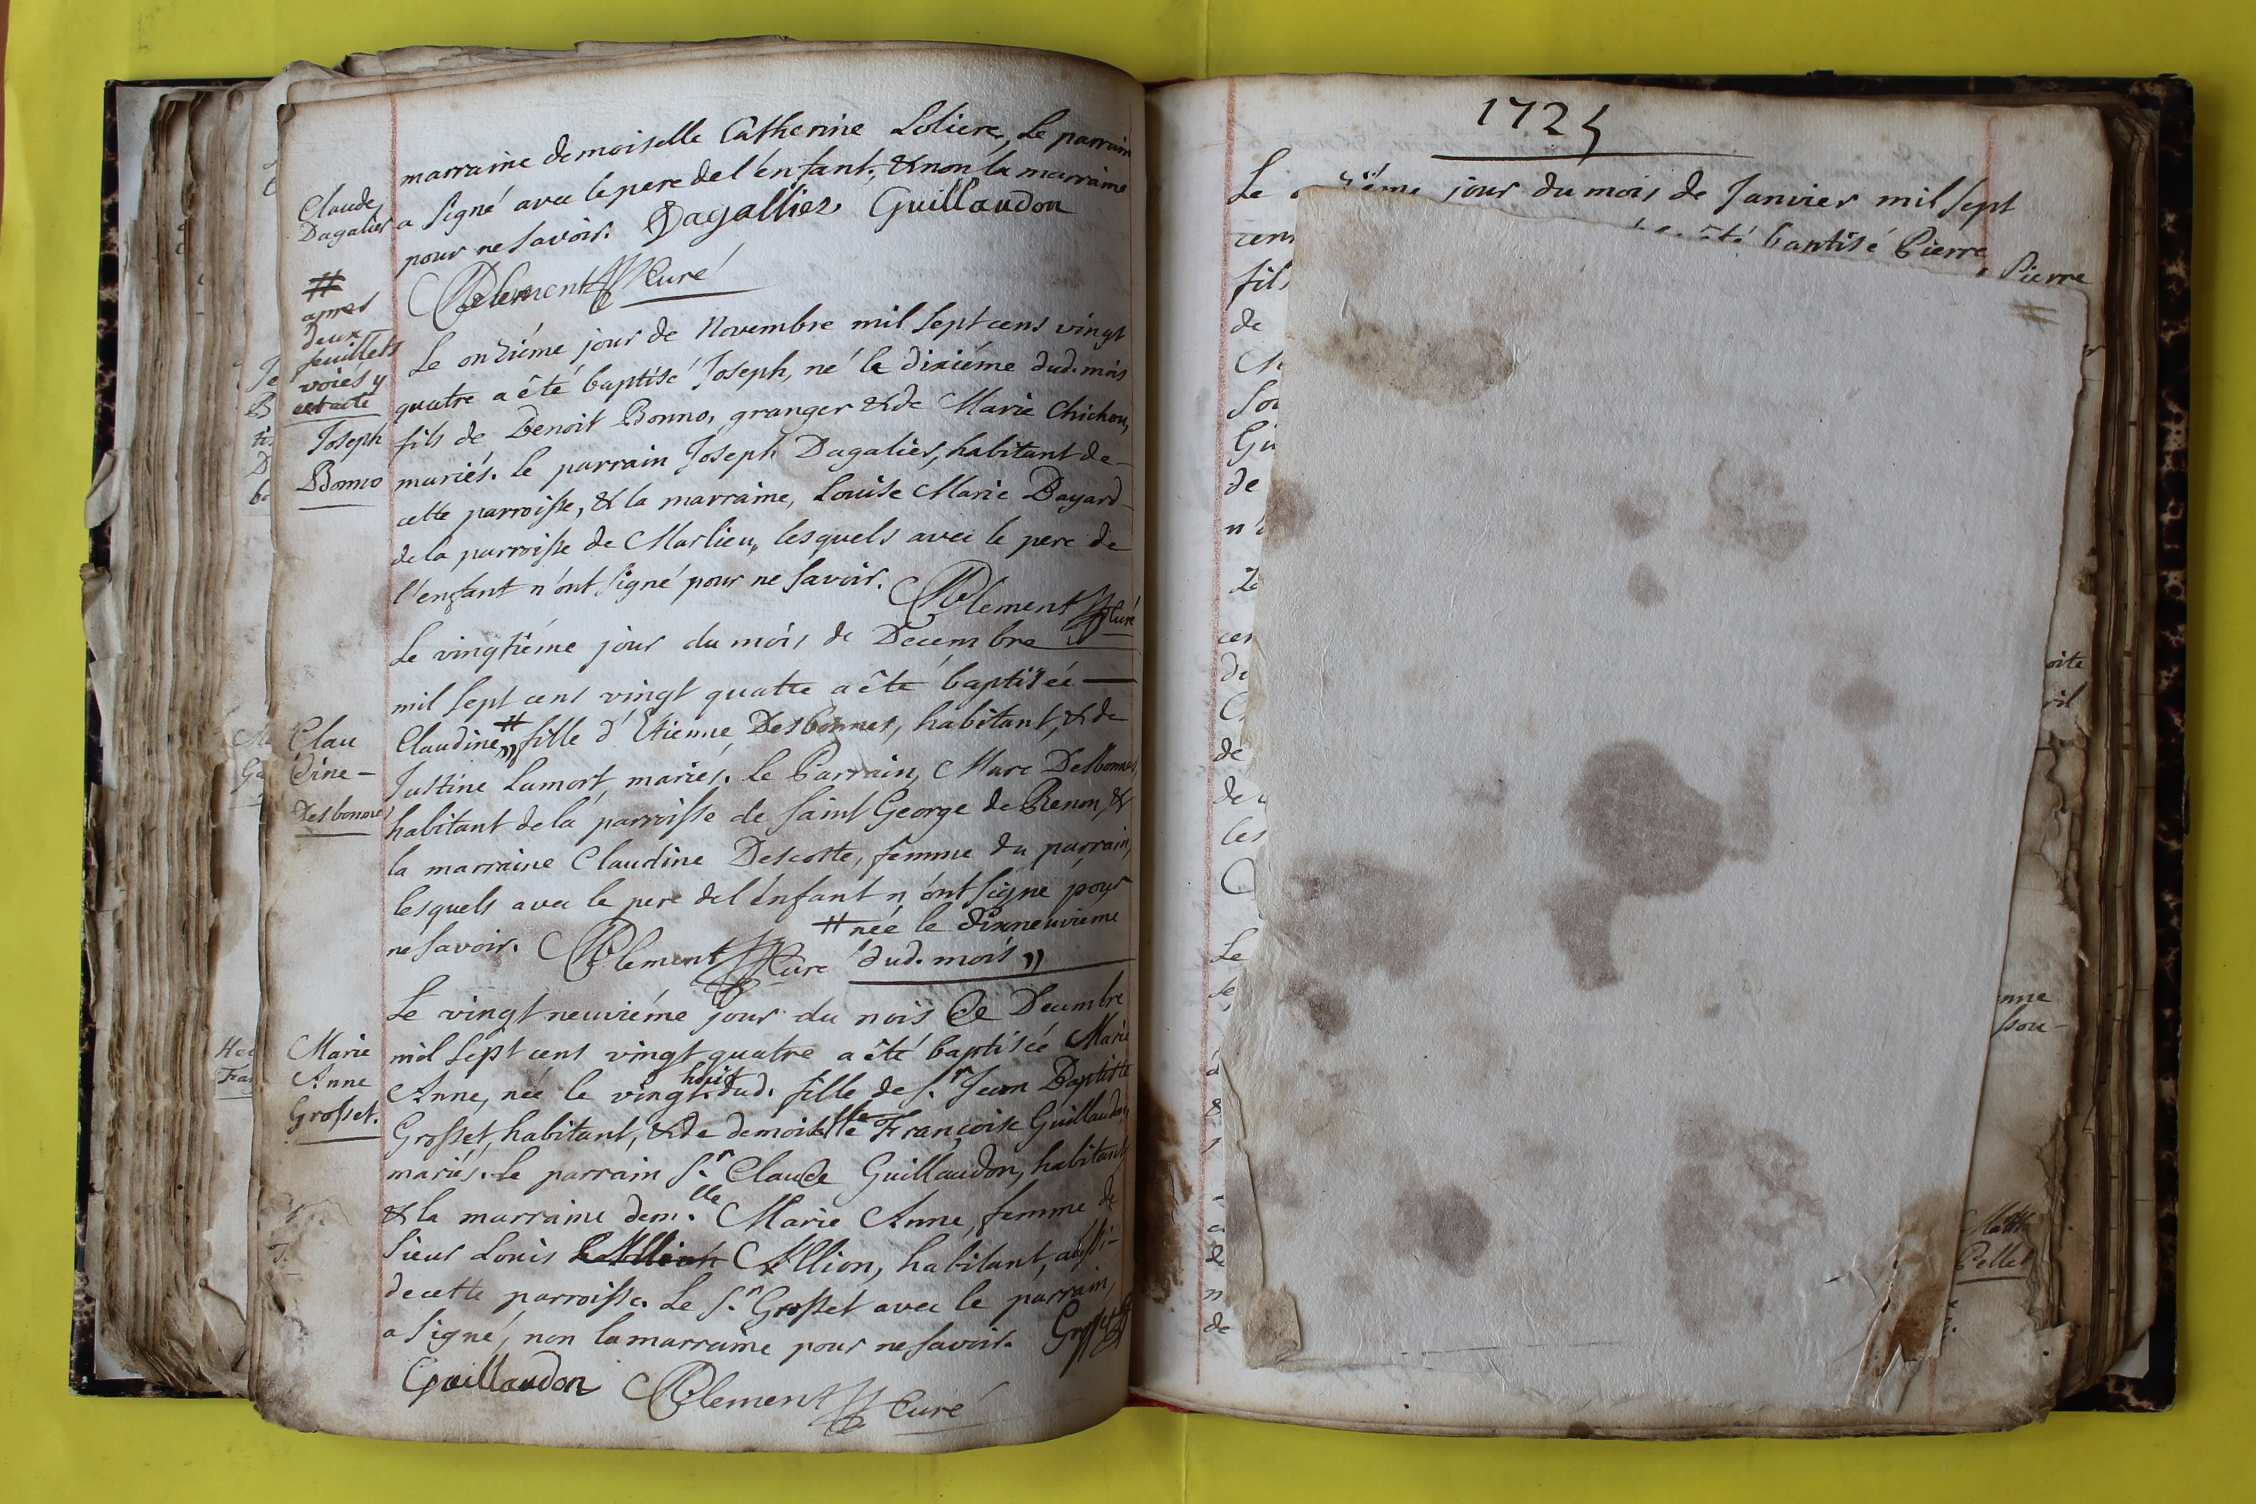 marraine demoiselle Catherine Loliere, le parrain
a signé avec le pere de l'enfant, & non la marraine
pour ne savoir. Dagallier Guillaudon
Clement Curé
Claude
Dagalier
#
apres
deux
feuillets
voiés y
cet acte
Le onziéme jour de Novembre mil sept cens vingt
quatre a êté baptisé Joseph, né le dixiéme dud. mois
fils de Benoit Bonno, granger & de Marie Chichon,
mariés. le parrain Joseph Dagalier, habitant de
cette parroisse, & la marraine, Louise Marie Bayard
de la parroisse de Marlieu, lesquels avec le pere de
l'enfant n'ont signé pour ne savoir. Clement Curé
Joseph
Bonno
Le vingtiéme jour du mois de Decembre
mil sept cens vingt quatre a êté baptisée
Claudine # fille d'Etienne Desbonnes, habitant, & de
Justine Lamort, mariés. le Parrain, Marc Desbonnes,
habitant de la parroisse de saint George de Renon, &
la marraine Claudine Descotte, femme du parrain,
lesquels avec le pere de l'enfant n'ont signé pour
ne savoir. Clement Curé # née le dixneuvieme
dud. mois
Clau
dine
Desbonne
Le vingt neuviéme jour du mois de Decembre
mil sept cens vingt quatre a êté baptisée Marie
Anne, née le vingt huit dud. fille de s.r Jean Baptiste
Grosset, habitant, & de demoiselle Françoise Guillaudon,
mariés. le parrain s.r Claude Guillaudon, habitant
& la marraine dem.lle Marie Anne, femme de
sieur Louis Allion, habitant, aussi
de cette parroisse. Le s.r Grosset avec le parrain,
a signé, non la marraine pour ne savoir. Grosset
Guillaudon Clement Curé
Marie
Anne
Grosset.
1725
Le jour du mois de Janvier mil sept
baptisé Pierre
Pierre
fils
de
de
de
de
Le
de
Pellet